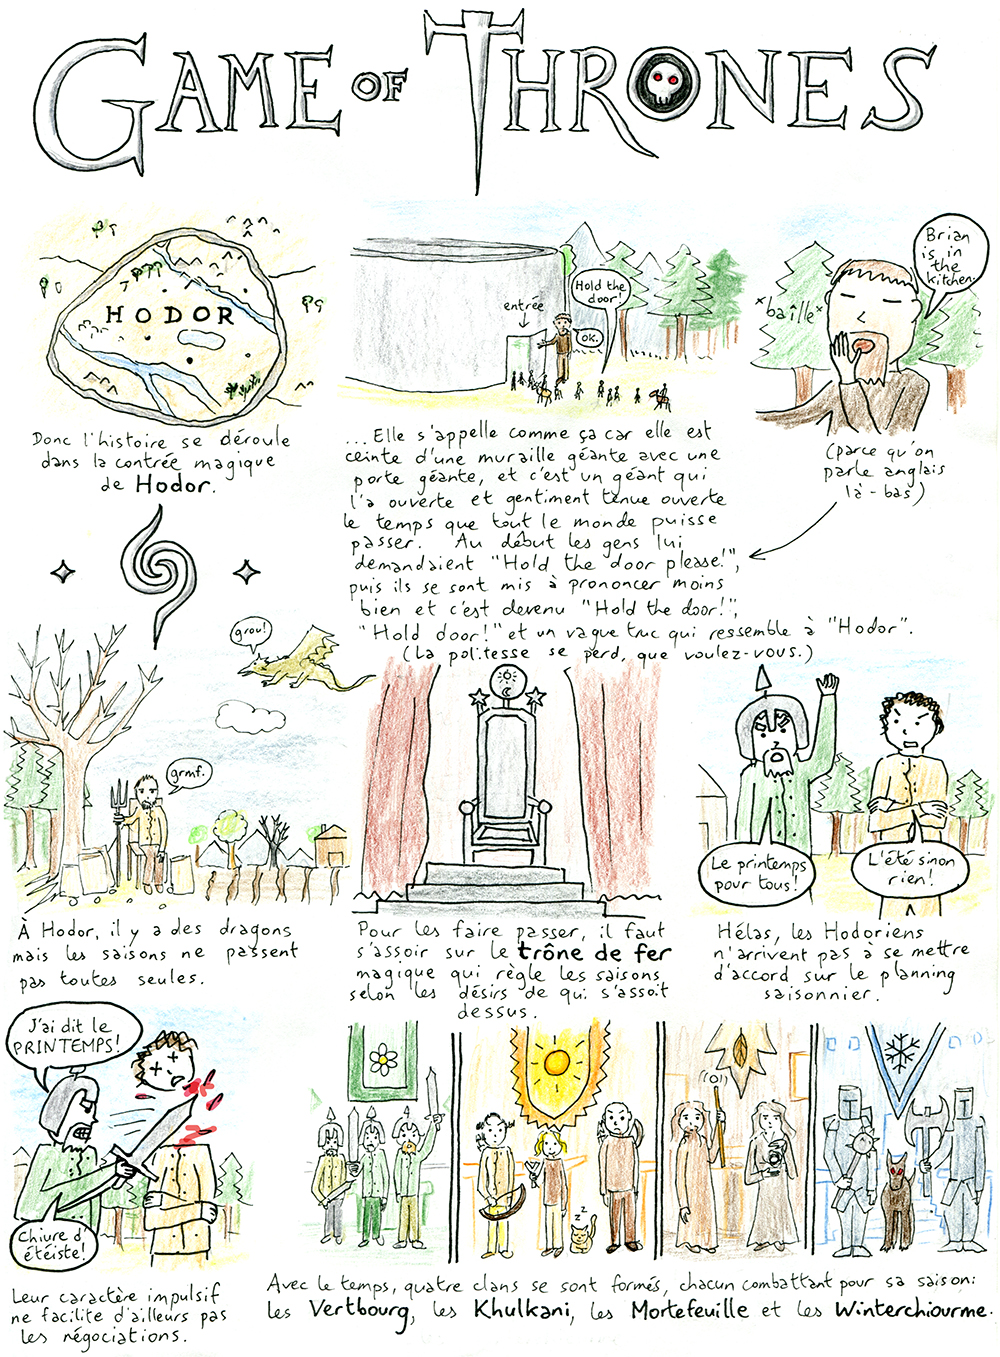 GAME OF THRONES
HODOR
Donc l'histoire se déroule
dans la contrée magique
de Hodor.
entrée
Hold the
door!
OK.
...Elle s'appelle comme ça car elle est
ceinte d'une muraille géante avec une
porte géante, et c'est un géant qui
l'a ouverte et gentiment tenue ouverte
le temps que tout le monde puisse
passer. Au début les gens lui
demandaient "Hold the door please!",
puis ils se sont mis à prononcer moins
bien et c'est devenu "Hold the door!",
"Hold door!" et un vague truc qui ressemble à "Hodor".
(La politesse se perd, que voulez-vous.)
*baîlle*
Brian
is in
the
kitchen.
(parce qu'on
parle anglais
là-bas)
grou!
grmf.
À Hodor, il y a des dragons
mais les saisons ne passent
pas toutes seules.
Pour les faire passer, il faut
s'assoir sur le trône de fer
magique qui règle les saisons
selon les désirs de qui s'assoit
dessus.
Le printemps
pour tous!
L'été sinon
rien!
Hélas, les Hodoriens
n'arrivent pas à se mettre
d'accord sur le planning
saisonnier.
J'ai dit le
PRINTEMPS!
Chiure d'
étéiste!
Leur caractère impulsif
ne facilite d'ailleurs pas
les négociations.
z z
Avec le temps, quatre clans se sont formés, chacun combattant pour sa saison:
les Vertbourg, les Khulkani, les Mortefeuille et les Winterchiourme.